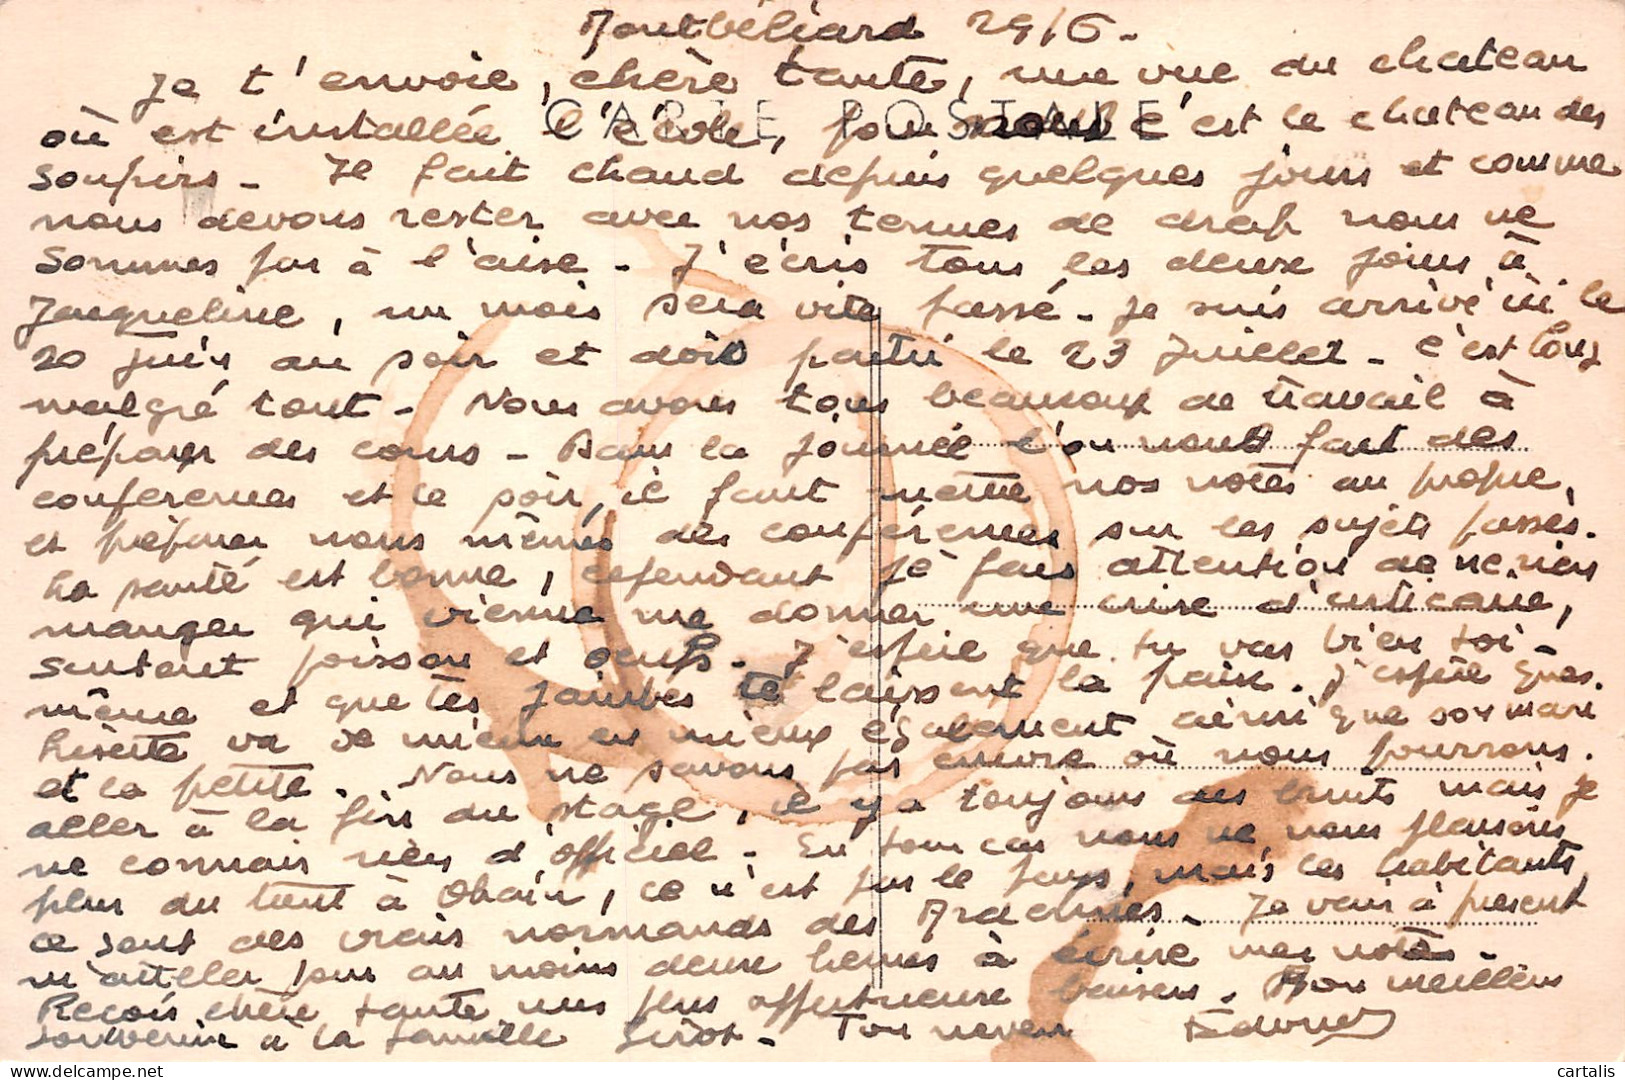 Montbéliard 29/6-
Je t'envoie, chère tante, une vue du chateau
CARTE POSTALE
où est installée l'école, pour nous c'est le chateau des
soupirs - Il fait chaud depuis quelques jours et comme
nous devons rester avec nos tenues de drap nous ne
sommes pas à l'aise - J'écris tous les deux jours à
Jacqueline, un mois sera vite passé - Je suis arrivé ici le
20 Juin au soir et dois partir le 23 Juillet - C'est long
malgré tout - Nous avons tous beaucoup de travail à
préparer des cours - Dans la journée l'on nous fait des
conférences et le soir, il faut mettre nos notes au propre,
et préparer nous mêmes des conférences sur les sujets passés.
La santé est bonne, cependant je fais attention de ne rien
manger qui vienne me donner une crise d'urticaire,
surtout poisson et oeufs. J'espère que tu vas bien toi-
même et que tes jambes te laissent la paix. J'espère que
va de mieux en mieux également ainsi que son mari
et la petite. Nous ne savons pas encore où nous pourrons
aller à la fin du stage, il y a toujours des bruits mais je
ne connais rien d'officiel - En tout cas nous ne nous plaisons
plus du tout à Ohain, ce n'est pas le pays, mais les habitants,
ce sont des vrais normands des Ardennes - Je vais à présent
m'atteler pour au moins deux heures à écrire mes notes -
Reçois chère tante mes plus affectueux baisers. Bon meilleur
souvenir à la famille - Ton neveu Edouard
cartalis